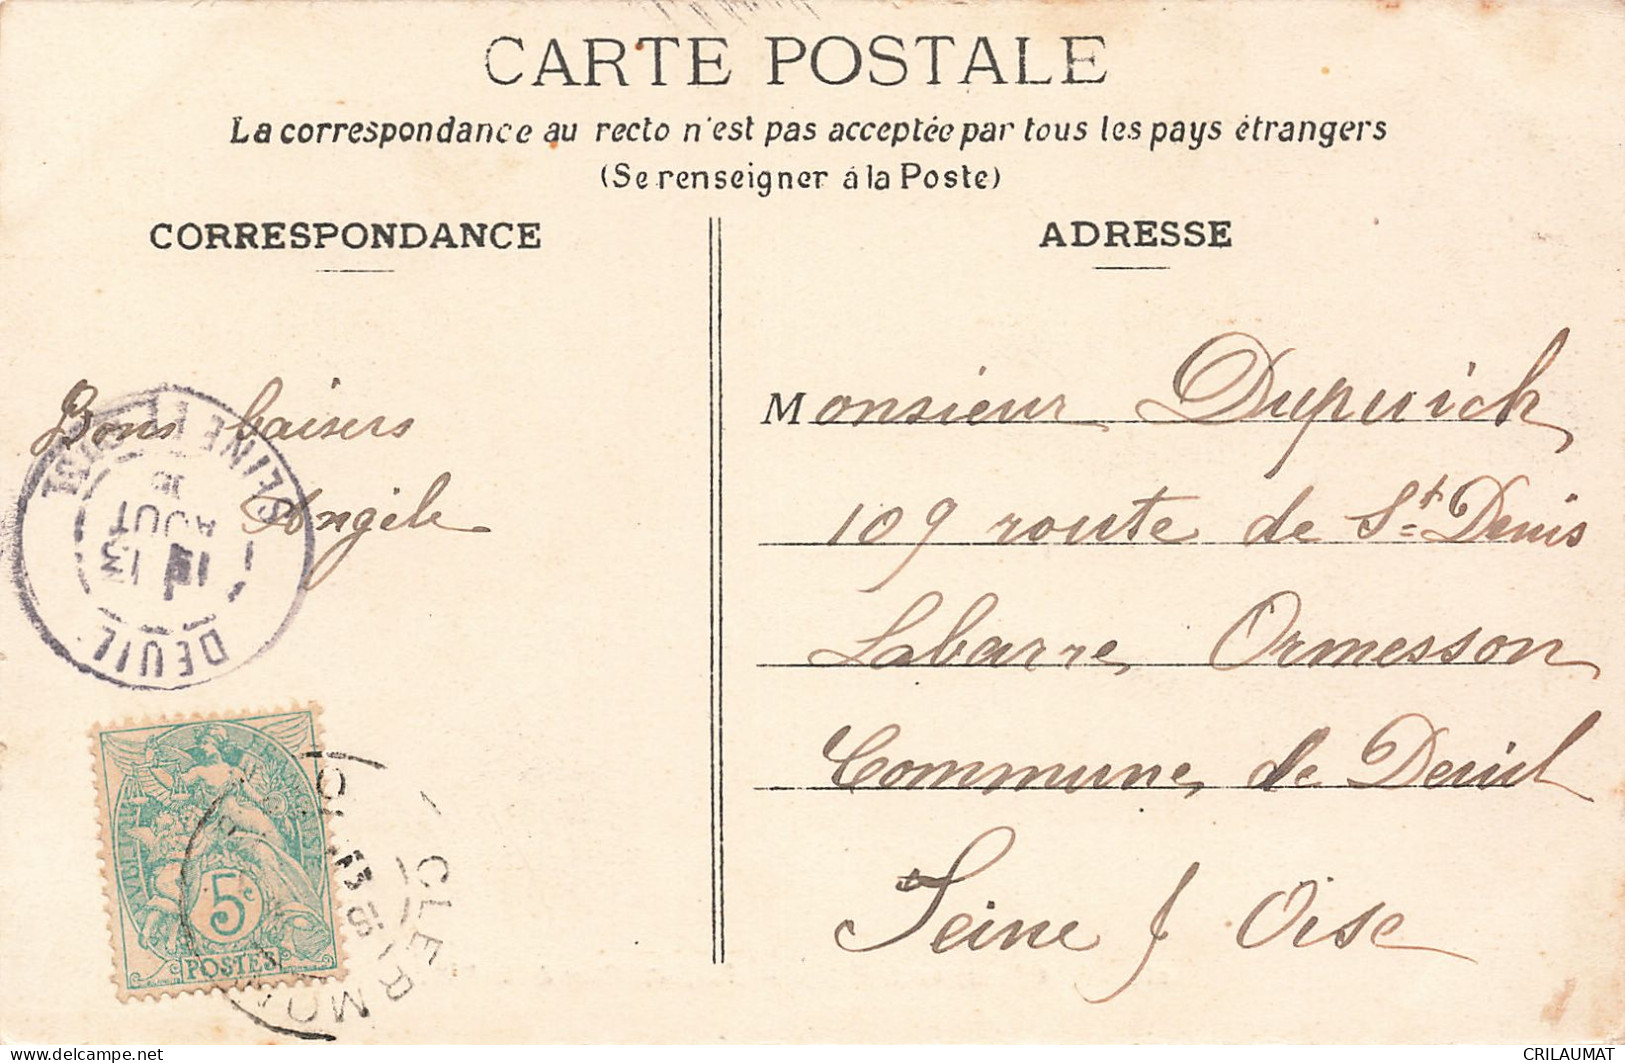 CARTE POSTALE
La correspondance au recto n'est pas acceptée par tous les pays étrangers
(Se renseigner à la Poste)
CORRESPONDANCE
ADRESSE
Bons baisers
Angèle
Monsieur Dupuich
109 route de St Denis
Labarre Ormesson
Commune de Deuil
Seine & Oise
DEUIL
13
AOUT
SEINE ET OISE
RF
5c
POSTES
CLERMONT
delcampe.net
CRILAUMAT